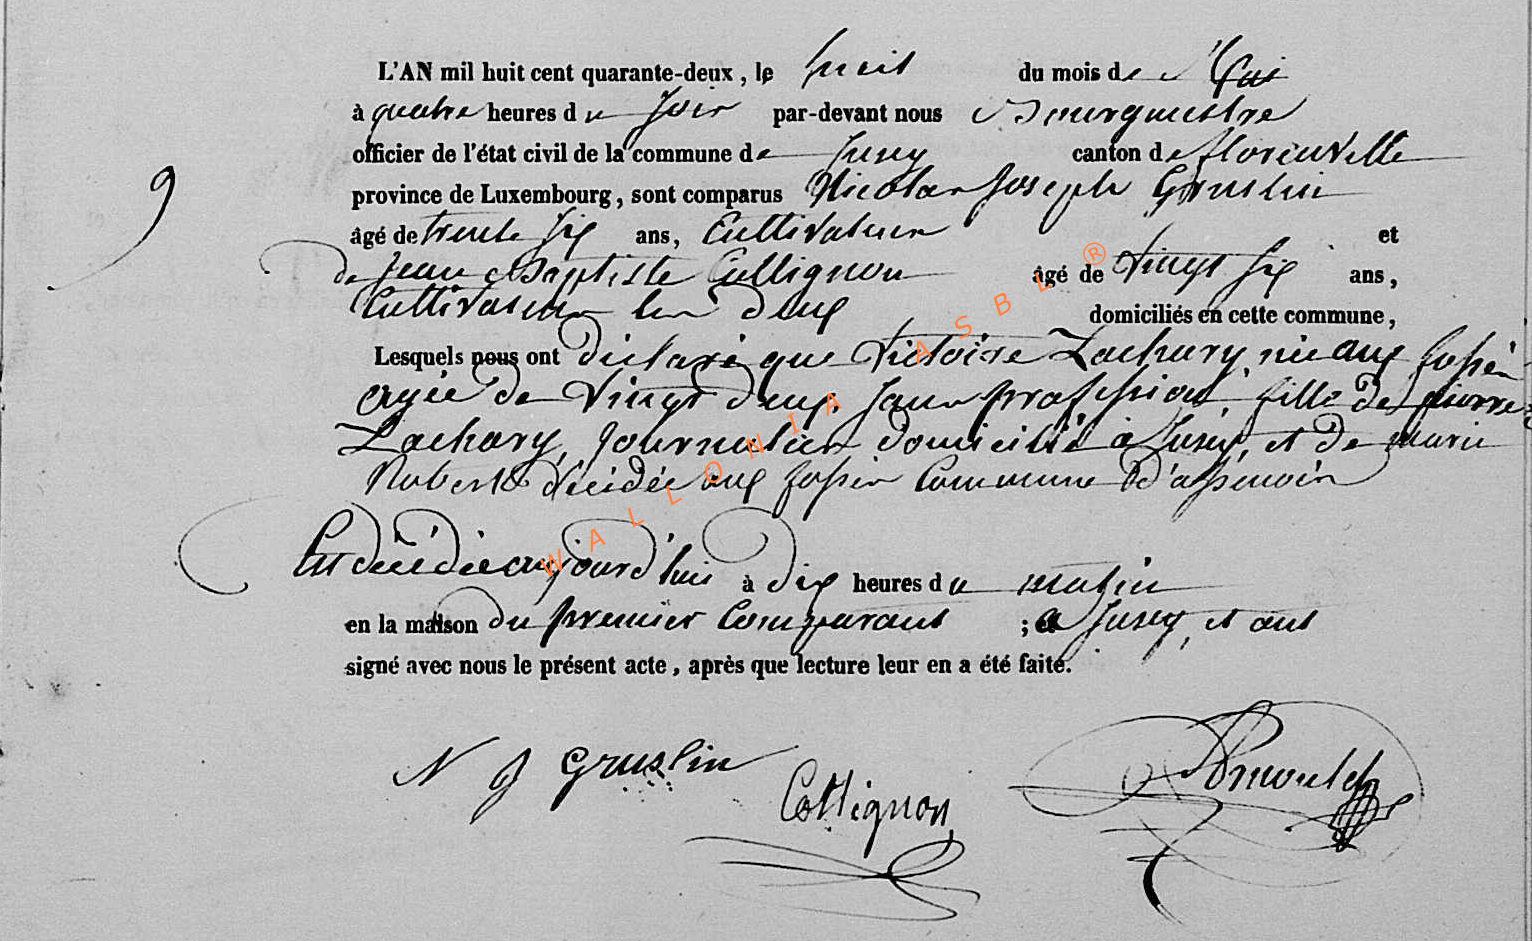 L'AN mil huit cent quarante-deux, le huit du mois de Mai
à quatre heures du soir par-devant nous Bourguestre
officier de l'état civil de la commune de Jusey canton de florenville
province de Luxembourg, sont comparus Nicolas Joseph Gruslin
9
âgé de trente six ans, Cultivateur et
de Jean Baptiste Collignon âgé de vingt six ans,
Cultivateur les deux domiciliés en cette commune,
Lesquels nous ont déclaré que Victoire Zachary née aux fossés
agée de vingt deux, sans profession, fille de pierre
Zachary, journalier domicilié à Jusey, et de marie
Robert décédée aux fossés Commune d'assenois
Est décédée aujourd'hui à dix heures du matin
en la maison du premier Comparant ; à Jusey, et ont
signé avec nous le présent acte, après que lecture leur en a été faite.
N J Gruslin
Collignon
WALLONIA ASBL ®